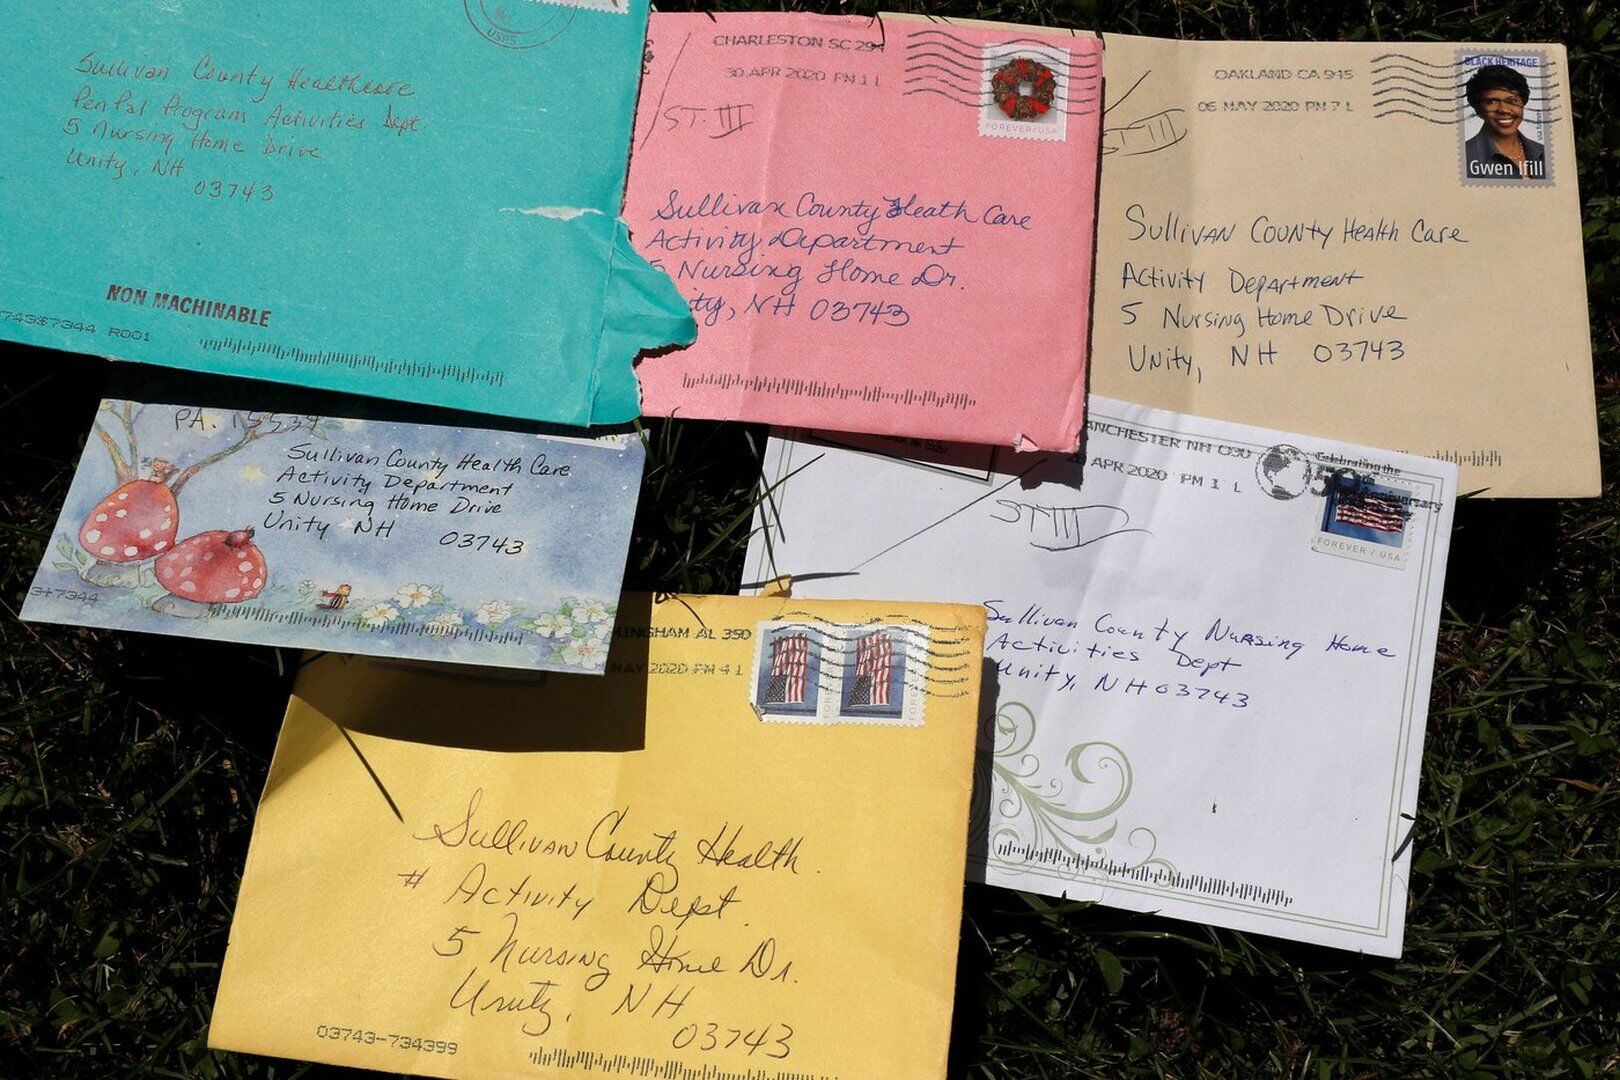 USPS
Sullivan County Healthcare
Pen Pal Program Activities Dept.
5 Nursing Home Drive
Unity, NH
03743
NON MACHINABLE
743*7344 R001
CHARLESTON SC 294
30 APR 2020 PM 1 L
ST. III
FOREVER/USA
Sullivan County Heath Care
Activity Department
5 Nursing Home Dr.
ity, NH 03743
OAKLAND CA 945
06 MAY 2020 PM 7 L
ST III
BLACK HERITAGE
Gwen Ifill
SULLIVAN COUNTY Health Care
Activity Department
5 Nursing Home Drive
Unity, NH 03743
PA. 15534
Sullivan County Health Care
Activity Department
5 Nursing Home Drive
Unity NH 03743
3+7344
ANCHESTER NH 030
APR 2020 PM 1 L
Celebrating the
Anniversary
ST III
FOREVER / USA
Sullivan County Nursing Home
Activities Dept
Unity, NH 03743
MINGHAM AL 350
MAY 2020 PM 4 L
FOREVER
FOREVER
Sullivan County Health
# Activity Dept.
5 Nursing Home Dr.
Unity, NH
03743
03743-734399